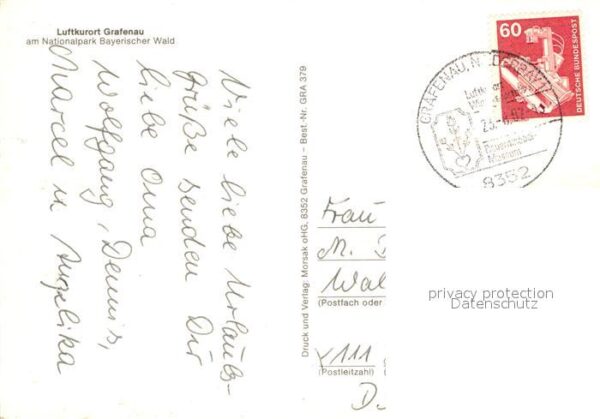 Luftkurort Grafenau
am Nationalpark Bayerischer Wald
Viele liebe Urlaubs-
grüße senden Dir
liebe Oma
Wolfgang, Dennis,
Marcel u Angelika
Druck und Verlag: Morsak oHG, 8352 Grafenau – Best.-Nr. GRA 379
60
DEUTSCHE BUNDESPOST
GRAFENAU, N
8352
Frau
M.
Wal
(Postfach oder
111
(Postleitzahl)
D
privacy protection
Datenschutz